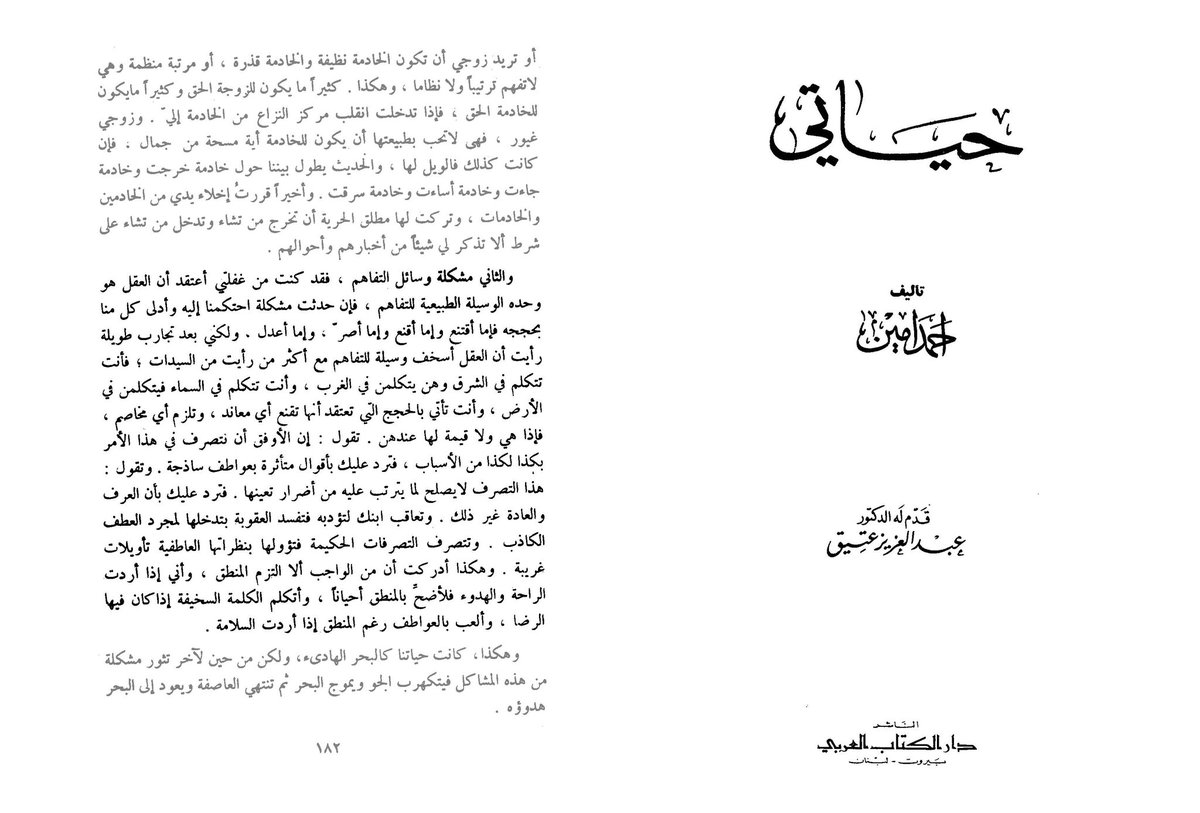 حياتي
تأليف
أحمد أمين
قدّم له الدكتور
عبد العزيز عتيق
الناشر
دار الكتاب العربي
بيروت - لبنان
أو تريد زوجي أن تكون الخادمة نظيفة والخادمة قذرة ، أو مرتبة منظمة وهي
لاتفهم ترتيباً ولا نظاما ، وهكذا . كثيراً ما يكون للزوجة الحق وكثيراً مايكون
للخادمة الحق ، فإذا تدخلت انقلب مركز النزاع من الخادمة إليّ . وزوجي
غيور ، فهى لاتحب بطبيعتها أن يكون للخادمة أية مسحة من جمال ، فإن
كانت كذلك فالويل لها ، والحديث يطول بيننا حول خادمة خرجت وخادمة
جاءت وخادمة أساءت وخادمة سرقت . وأخيراً قررتُ إخلاء يدي من الخادمين
والخادمات ، وتركت لها مطلق الحرية أن تخرج من تشاء وتدخل من تشاء على
شرط ألا تذكر لي شيئاً من أخبارهم وأحوالهم .
والثاني مشكلة وسائل التفاهم ، فقد كنت من غفلتي أعتقد أن العقل هو
وحده الوسيلة الطبيعية للتفاهم ، فإن حدثت مشكلة احتكمنا إليه وأدلى كل منا
بحججه فإما أقتنع وإما أقنع وإما أصرّ ، وإما أعدل . ولكني بعد تجارب طويلة
رأيت أن العقل أسخف وسيلة للتفاهم مع أكثر من رأيت من السيدات ؛ فأنت
تتكلم في الشرق وهن يتكلمن في الغرب ، وأنت تتكلم في السماء فيتكلمن في
الأرض ، وأنت تأتي بالحجج التي تعتقد أنها تقنع أي معاند ، وتلزم أي مخاصم ،
فإذا هي ولا قيمة لها عندهن . تقول : إن الأوفق أن نتصرف في هذا الأمر
بكذا لكذا من الأسباب ، فترد عليك بأقوال متأثرة بعواطف ساذجة . وتقول :
هذا التصرف لايصلح لما يترتب عليه من أضرار تعينها . فترد عليك بأن العرف
والعادة غير ذلك . وتعاقب ابنك لتؤدبه فتفسد العقوبة بتدخلها لمجرد العطف
الكاذب . وتتصرف التصرفات الحكيمة فتؤولها بنظراتها العاطفية تأويلات
غريبة . وهكذا أدركت أن من الواجب ألا التزم المنطق ، وأني إذا أردت
الراحة والهدوء فلأضحِّ بالمنطق أحياناً ، وأتكلم الكلمة السخيفة إذا كان فيها
الرضا ، وألعب بالعواطف رغم المنطق إذا أردت السلامة .
وهكذا، كانت حياتنا كالبحر الهادىء، ولكن من حين لآخر تثور مشكلة
من هذه المشاكل فيتكهرب الجو ويموج البحر ثم تنتهي العاصفة ويعود إلى البحر
هدوؤه .
١٨٢